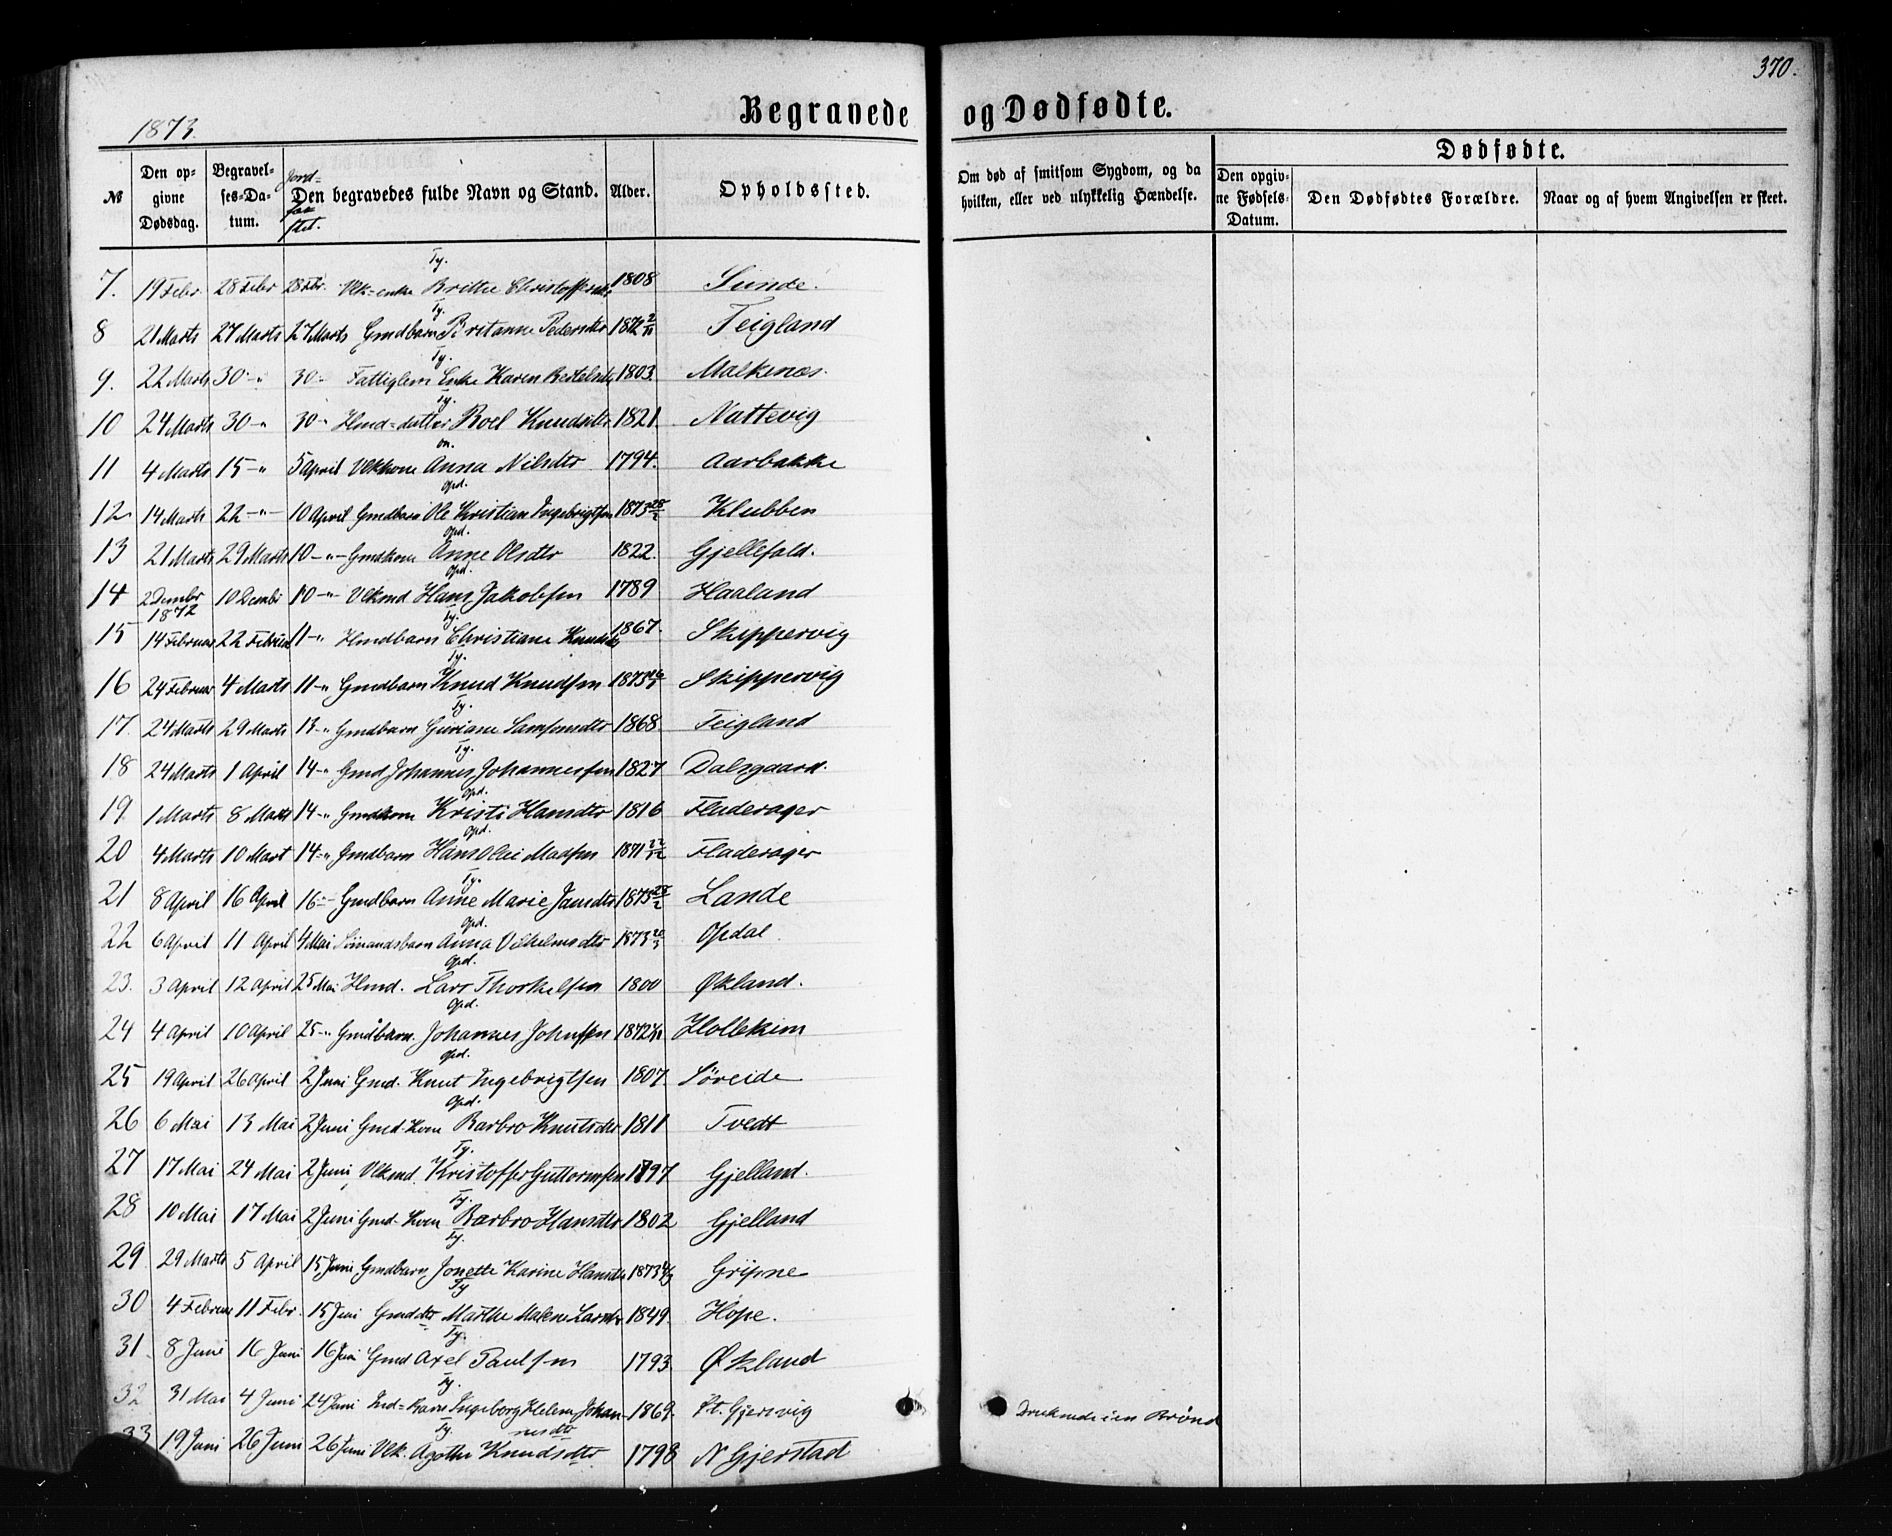 370.
Begravede og Dødfødte.
1873.
№ Den opgivne Dødsdag. Begravelses-Datum. Jordfæstet. Den begravedes fulde Navn og Stand. Alder. Opholdssted. Om død af smitsom Sygdom, og da hvilken, eller ved ulykkelig Hændelse. Dødfødte. Den opgivne Fødsels-Datum. Den Dødfødtes Forældre. Naar og af hvem Angivelsen er skeet.
Ty.
7. 19 Febr 28 Febr 28 Febr. Vlk=enke Brithe Christoffersdtr 1808 Sunde.
Ty.
8 21 Marts 27 Marts 27 Marts Gmdbarn Britanne Pedersdtr 1872 2/11 Teigland
Ty.
9. 22 Marts 30 -"- 30 - Fattiglem Enke Karen Bertelsdtr 1803. Malkenæs.
Ty.
10 24 Marts 30 -" 30 -" Hmd=datter Roel Knudsdtr 1821. Nattevig
on.
11 4 Marts 15 -" 5 April Vlkkone Anna Nilsdtr 1794. Aarbakke
Opd.
12 14 Marts 22 -"- 10 April Gmdbarn Ole Kristian Ingebrigtsen 1873 28/2 Klubben
Opd.
13 21 Marts 29 Marts 10 -"- Gmdkone Anne Olsdtr 1822. Gjellefald.
Opd.
14 2 Dcembr 1872 10 Dcembr 10 -" Vlkmd Hans Jakobsen 1789 Haaland
Ty.
15 14 Februar 22 Februar 11 -" Hmdbarn Christiane Knudsdtr 1867. Skippervig
Ty.
16 24 Februar 4 Marts 11 -" Gmdbarn Knud Knudsen 1873 Skippervig
Ty.
17. 24 Marts 29 Marts 13 -" Gmdbarn Guriane Samsonsdtr 1868. Teigland
Ty.
18 24 Marts 1 April 14 -" Gmd Johannes Johannessen 1827 Dalsgaard.
Opd.
19. 1 Marts 8 Marts 14 -" Gmdkone Kristi Hansdtr 1816 Fladerager
Opd.
20 4 Marts 10 Mart 14 -" Gmdbarn Hans Olai Madsen 1871 22/12 Fladerager
Ty.
21 8 April 16 April 16 - Gmdbarn Anne Marie Jansdtr 1873 28/2 Lande
Opd.
22 6 April 11 April 4 Mai Sömandsbarn Anna Vilhelmsdtr 1873 20/3 Opdal.
Opd.
23. 3 April 12 April 25 Mai Hmd. Lars Thorkelsen 1800 Økland.
Opd.
24 4 April 10 April 25 -" Gmdbarn. Johannes Johnsen 1872 Hollekim
Opd.
25 19 April 26 April 2 Juni Gmd. Knut Ingebrigtsen 1807. Söreide
Opd.
26 6 Mai 13 Mai 2 Juni Gmd. Kone Barbro Knutsdtr 1811 Tvedt
Ty.
27 17 Mai 24 Mai 2 Juni Vlkmd. Kristoffer Guttormsen 1797 Gjelland.
Ty.
28 10 Mai 17 Mai 2 Juni Gmd. Kone Barbro Hansdtr 1802 Gjelland
Ty.
29 29 Marts 5 April 15 Juni Gmdbarn Jonette Karine Hansdtr 1873 Gripne
Ty
30 4 Februar 11 Febr. 15 Juni Gmddtr Marthe Malene Larsdtr 1849. Hope.
Ty.
31. 8 Juni 16 Juni 16 Juni Gmd Axel Paulsen 1793 Økland
Ty.
32 31 Mai 4 Juni 24 Juni Ind=Barn Ingeborg Helene Johannesdtr 1869. St. Gjersvig Druknede i en Brönd
Ty.
33 19 Juni 26 Juni 26 Juni Vlk. Agathe Knudsdtr 1798 N Gjerstad